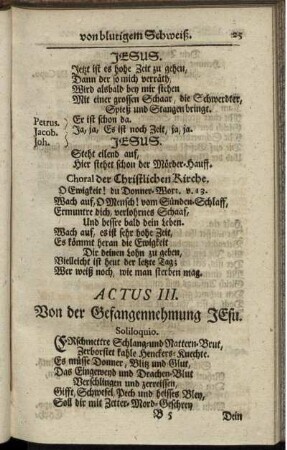 von blutigem Schweiß. 25
JESUS.
Jetzt ist es hohe Zeit zu gehen,
Dann der so mich verräth,
Wird alsbald bey mir stehen
Mit einer grossen Schaar, die Schwerdter,
Spieß und Stangen bringt.
Petrus. Er ist schon da.
Jacob. Ja, ja, Es ist noch Zeit, ja, ja.
Joh. JESUS.
Steht eilend auf,
Hier stehet schon der Mörder-Hauff.
Choral der Christlichen Kirche.
O Ewigkeit! du Donner-Wort. v. 13.
Wach auf, O Mensch! vom Sünden-Schlaff,
Ermuntre dich, verlohrnes Schaaf,
Und bessre bald dein Leben.
Wach auf, es ist sehr hohe Zeit,
Es kömmt heran die Ewigkeit
Dir deinen Lohn zu geben,
Vielleicht ist heut der letzte Tag;
Wer weiß noch, wie man sterben mag.
ACTUS III.
Von der Gefangennehmung JEsu.
Soliloquio.
ERschmettre Schlang- und Nattern-Brut,
Zerborstet kahle Henckers-Knechte.
Es müsse Donner, Blitz und Glut,
Das Eingeweyd und Drachen-Blut
Verschlingen und zerreissen,
Gifft, Schwefel, Pech und heisses Bley,
Soll dir mit Zetter-Mord-Geschrey
B 5 Dein